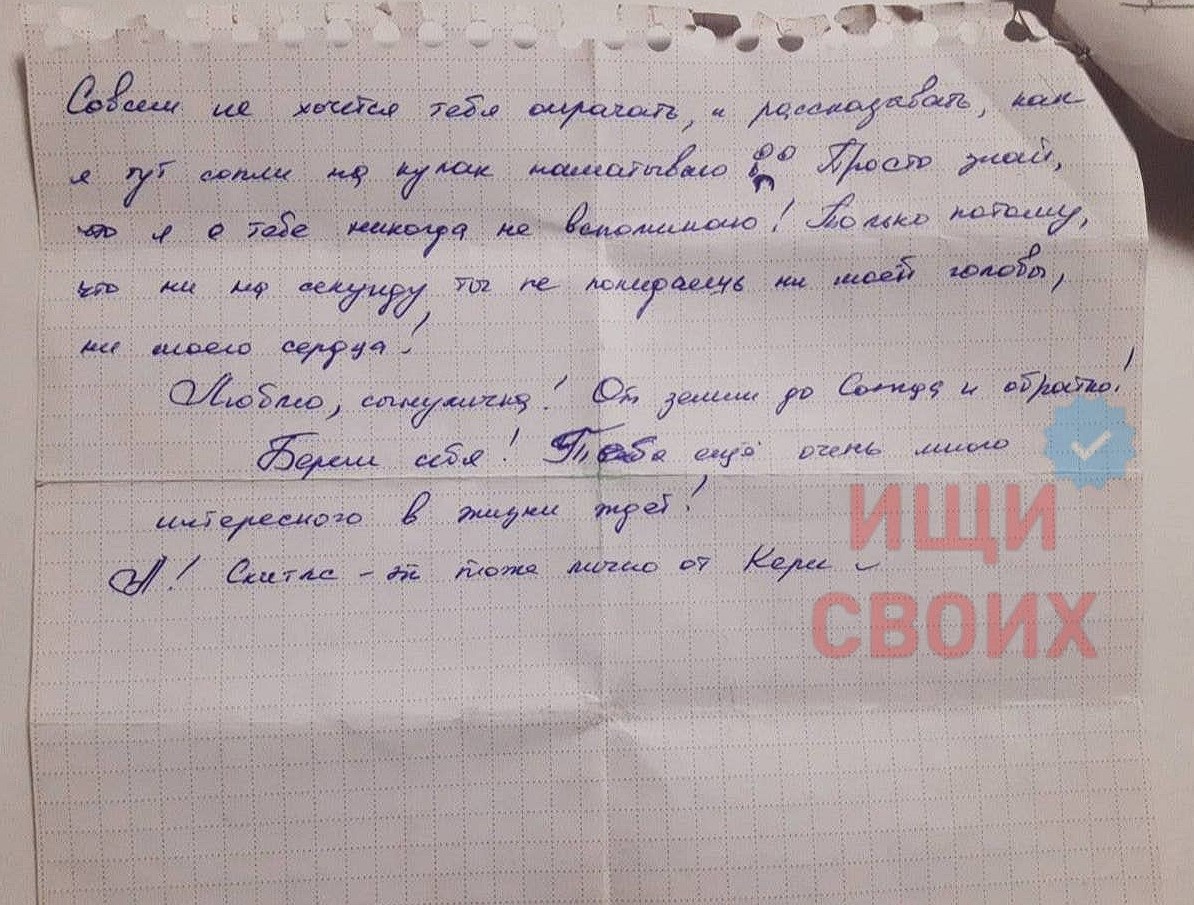 Совсем не хочется тебя омрачать, и рассказывать, как
я тут сопли на кулак наматываю Просто знай,
что я о тебе никогда не вспоминаю! Только потому,
что ни на секунду ты не покидаешь ни моей головы,
ни моего сердца!
Люблю, сынуличка! От земли до Солнца и обратно!
Береги себя! Тебя ещё очень много
интересного в жизни ждёт!
А! Скитлс - эт тоже лично от Кери
ИЩИ
СВОИХ